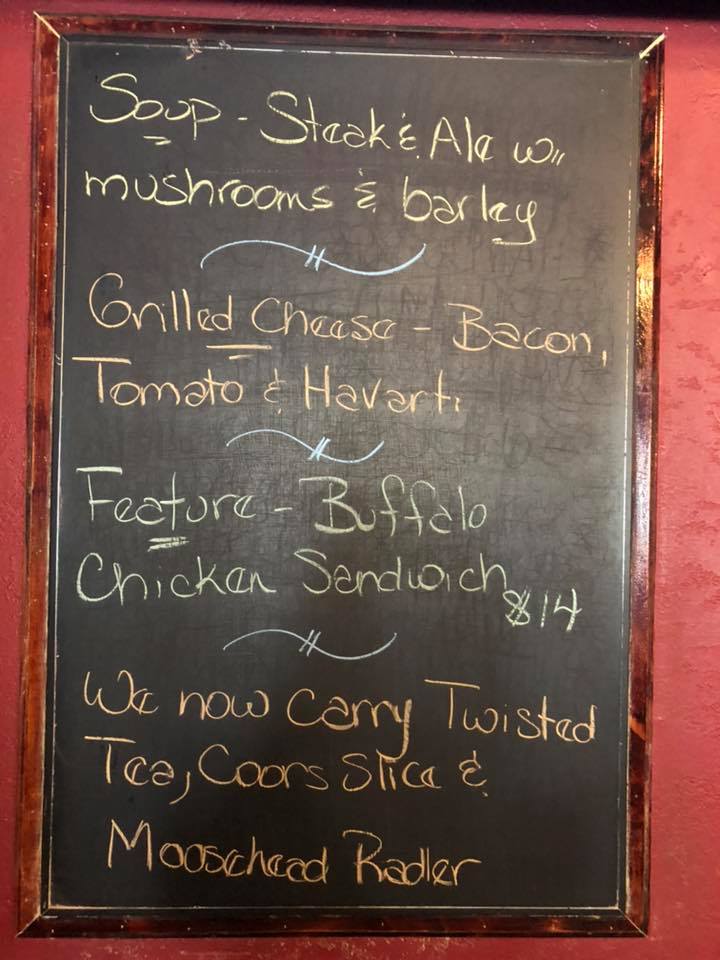 Soup - Steak & Ale w//
mushrooms & barley
Grilled Cheese - Bacon,
Tomato & Havarti
Feature - Buffalo
Chicken Sandwich $14
We now carry Twisted
Tea, Coors Slice &
Moosehead Radler